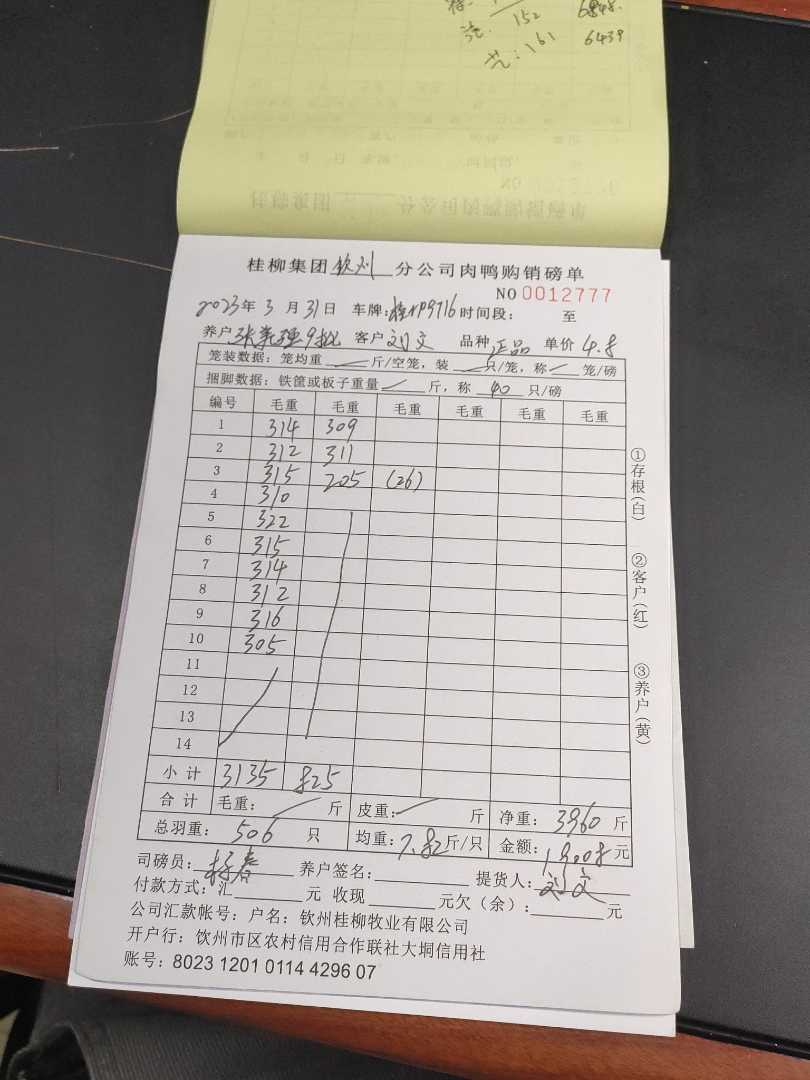 152 6848.
161 6439
桂柳集团钦州分公司肉鸭购销磅单
NO 0012777
2023年3月31日 车牌:桂NP9716 时间段: 至
养户 9批 客户 刘文 品种 正品 单价 4.8
笼装数据:笼均重 斤/空笼,装 只/笼,称 笼/磅
捆脚数据:铁筐或板子重量 斤,称 40 只/磅
编号 毛重 毛重 毛重 毛重 毛重 毛重
1 314 309
2 312 311
3 315 205 (26)
4 310
5 322
6 315
7 314
8 312
9 316
10 305
11
12
13
14
小计 3135 825
合计 毛重: 斤 皮重: 斤 净重: 3960 斤
总羽重: 506 只 均重: 7.82 斤/只 金额: 19008 元
司磅员: 养户签名: 提货人: 刘文
付款方式:汇 元 收现 元欠(余): 元
公司汇款帐号:户名:钦州桂柳牧业有限公司
开户行:钦州市区农村信用合作联社大垌信用社
账号:8023 1201 0114 4296 07
①存根(白)
②客户(红)
③养户(黄)